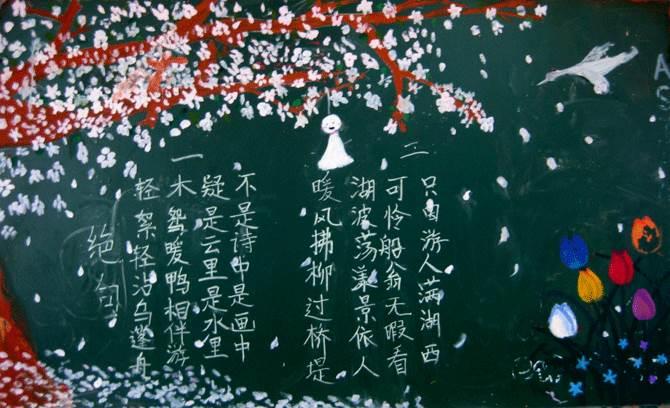 绝句
一
轻絮轻沾乌篷舟
木鸳暖鸭相伴游
疑是云里是水里
不是诗中是画中
二
暖风拂柳过桥堤
湖波荡漾景依人
可怜船翁无暇看
只因游人满湖西
A
S